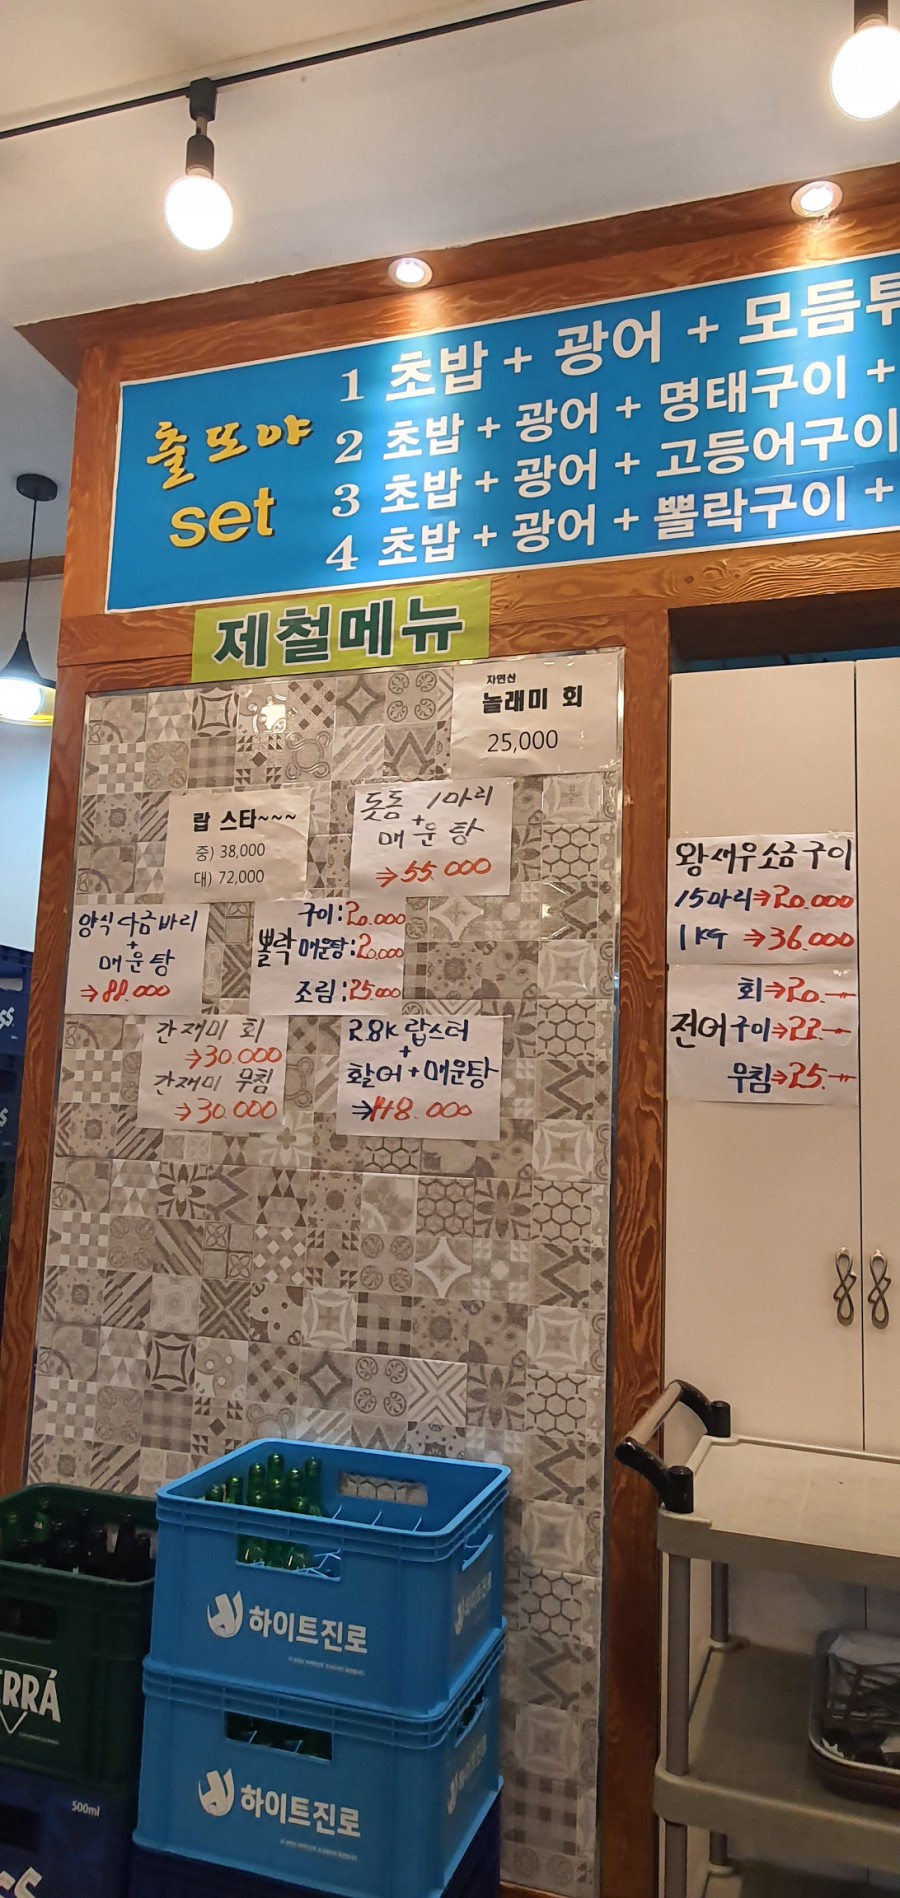 출또야
set
1 초밥 + 광어 + 모듬튀
2 초밥 + 광어 + 명태구이 +
3 초밥 + 광어 + 고등어구이
4 초밥 + 광어 + 뽈락구이 +
제철메뉴
자연산
놀래미 회
25,000
랍 스타~~~
중) 38,000
대) 72,000
돗돔 1마리
+
매운탕
⇒55.000
양식 다금바리
+
매운탕
⇒88.000
뽈락
구이:20.000
매운탕:20,000
조림:25.000
간재미 회
⇒30.000
간재미 무침
⇒30.000
2.8K 랍스터
+
활어+매운탕
⇒148.000
왕새우소금구이
15마리⇒20.000
1KG ⇒36.000
전어
회⇒20.-
구이⇒22.-
무침⇒25.-
하이트진로
하이트진로
ERRA
500ml